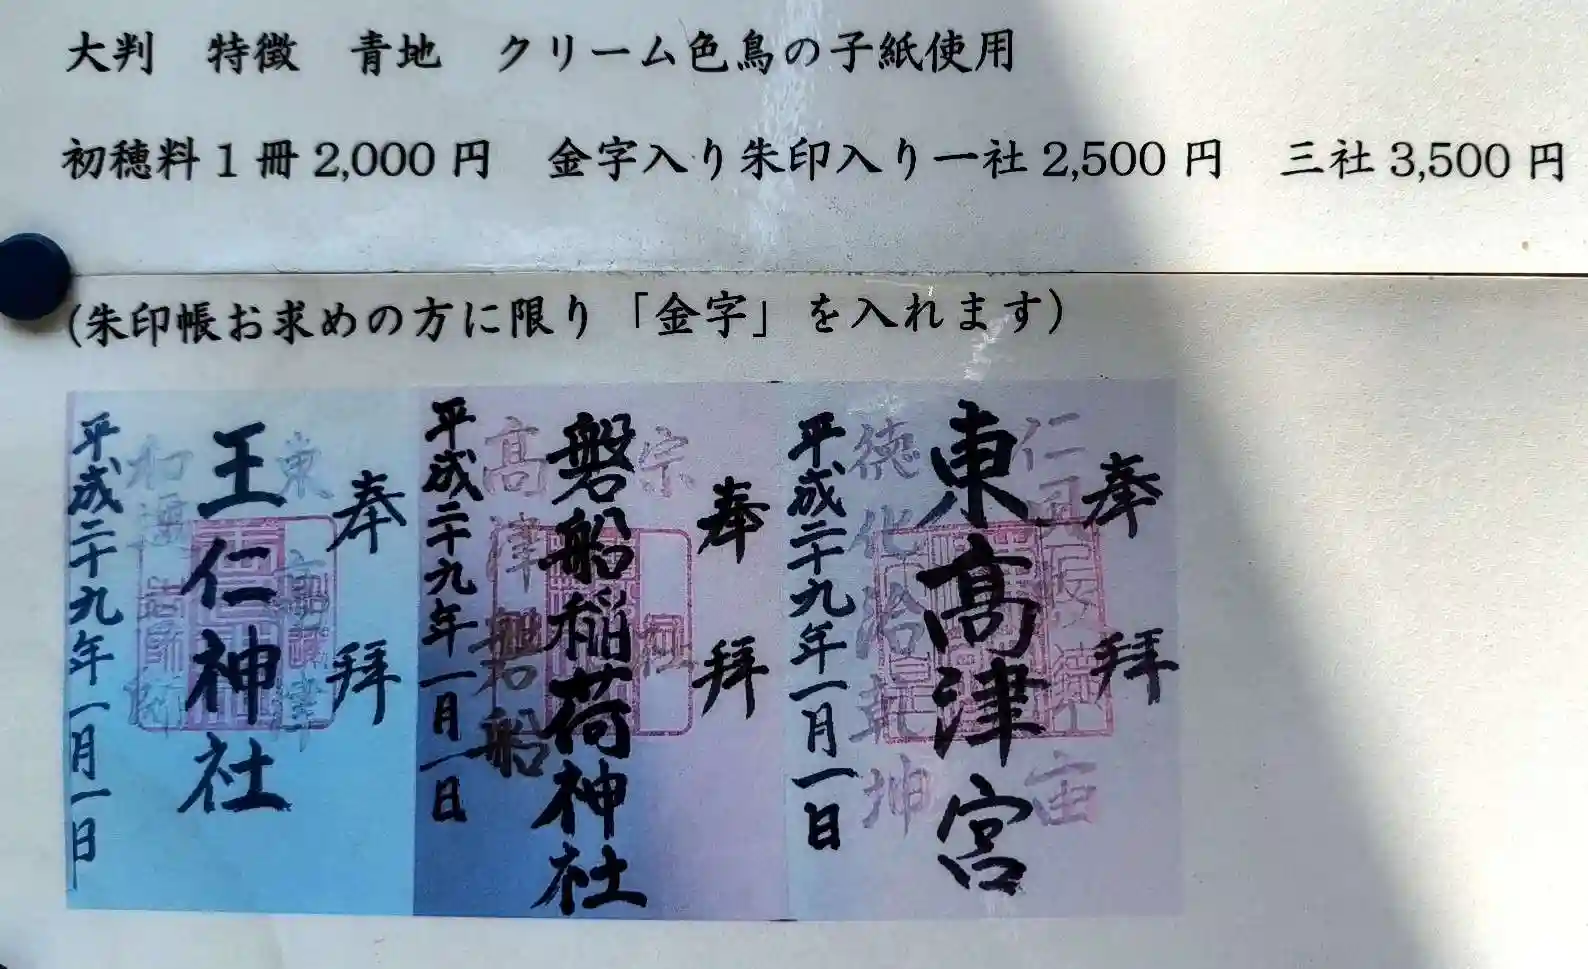 大判　特徴　青地　クリーム色鳥の子紙使用
初穂料1冊2,000円　金字入り朱印入り一社2,500円　三社3,500円
(朱印帳お求めの方に限り「金字」を入れます)
奉拝
仁
宙
東高津宮
徳化治
乾坤
平成二十九年一月一日
奉拝
宗
磐船稲荷神社
高津
磐船
平成二十九年一月一日
奉拝
東高津
王仁神社
平成二十九年一月一日